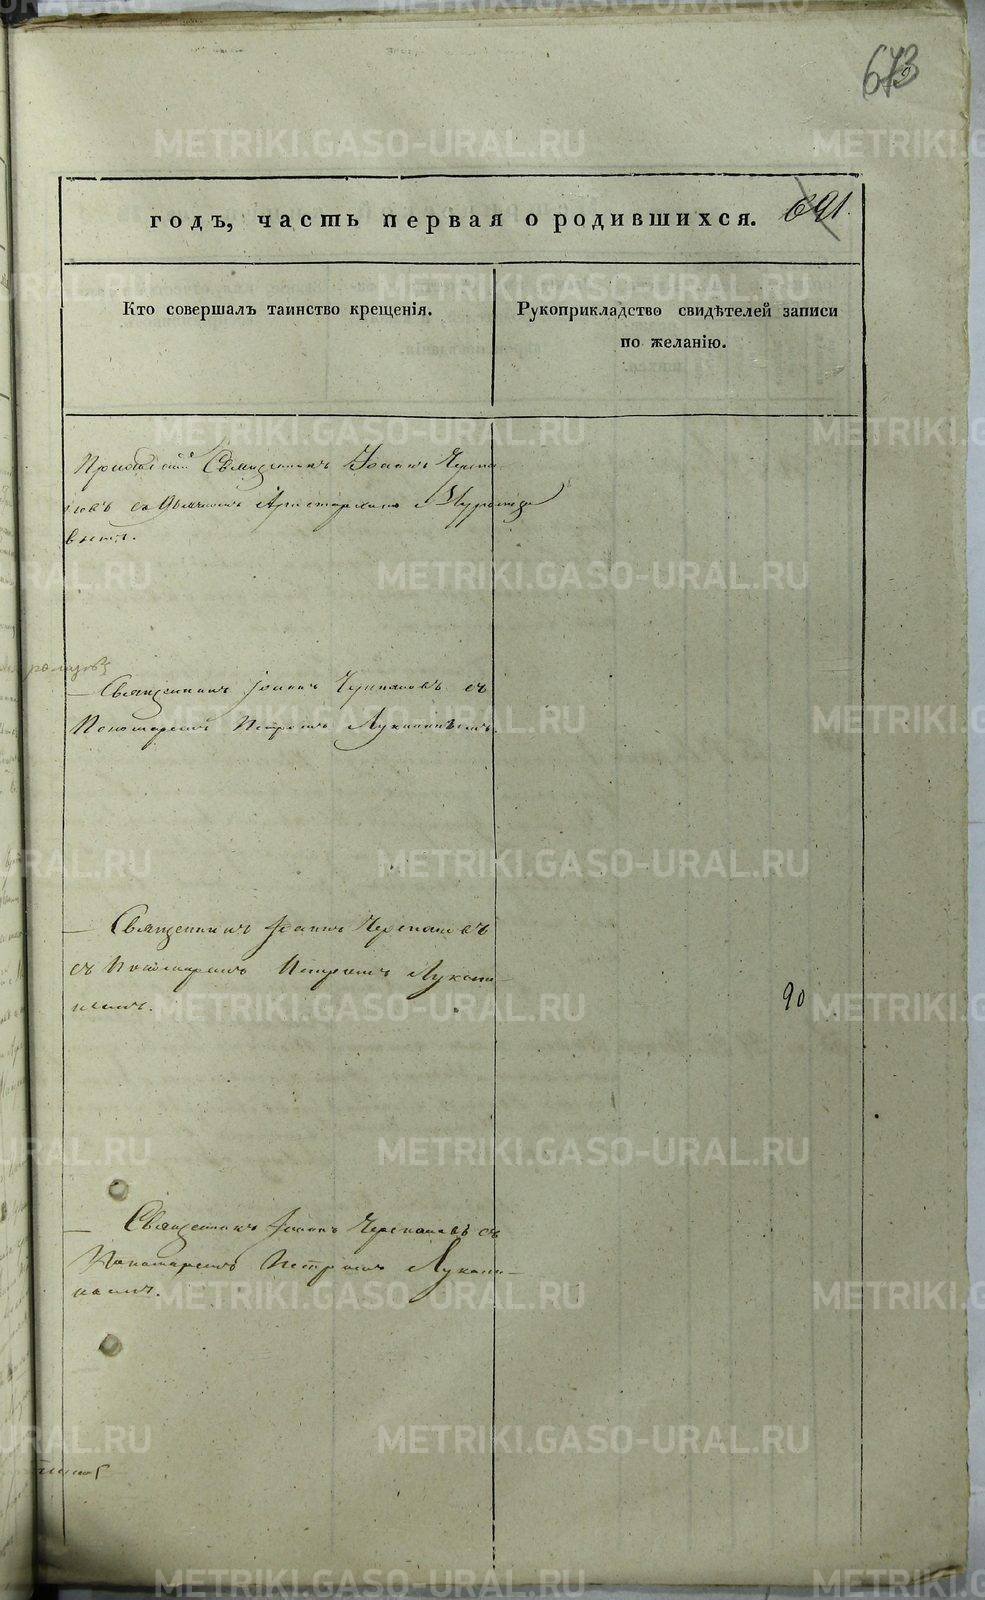 673
годъ, часть первая о родившихся. 691.
Кто совершалъ таинство крещенія.
Рукоприкладство свидѣтелей записи
по желанію.
Священникъ Іоаннъ Черепа-
новъ съ Аристархомъ
Священникъ Іоаннъ Черпановъ съ
Пономаремъ Петромъ Луканинымъ.
— Священникъ Іоаннъ Черепановъ
съ Пономаремъ Петромъ Лукани-
нымъ.
90
— Священникъ Іоаннъ Черепановъ съ
Пономаремъ Петромъ Лукани-
нымъ.
METRIKI.GASO-URAL.RU